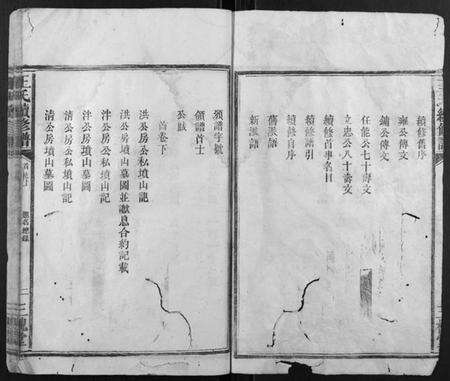 續修舊序
雍公傳文
鏽公傳文
任龍公七十壽文
立忠公八十壽文
續修首事名目
續修譜引
續修自序
舊派語
新派語
領譜字號
領譜首士
公賦
首卷下
洪公房公私墳山記
洪公房墳山墓圖並獻息合約記載
泮公房公私墳山記
泮公房墳山墓圖
清公房公私墳山記
清公房墳山墓圖
王氏續修譜